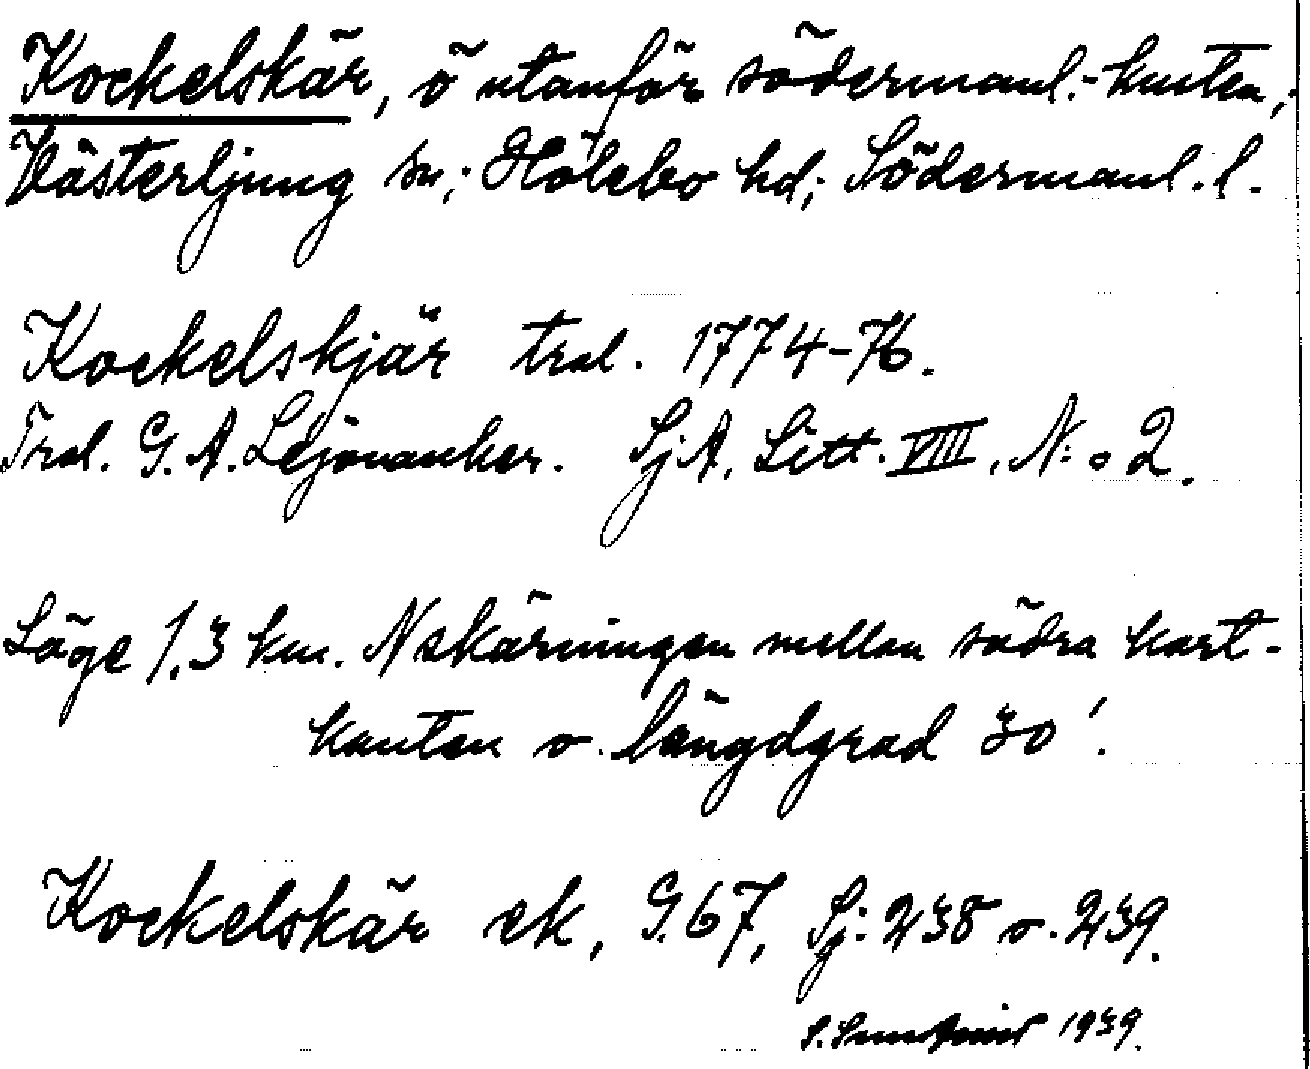 Kockelskär, ö utanför södermanl.-kusten,
Västerljung sn; Hölebo hd; Södermanl. l.
Kockelskjär trol. 1774-76.
Trol. G. A. Lejonanker. SjA. Litt. VIII, N:o 2.
Läge 1,3 km. N skärningen mellan södra kart-
kanten o. längdgrad 30'.
Kockelskär ek, G.67, Sj: 238 o. 239.
1939.